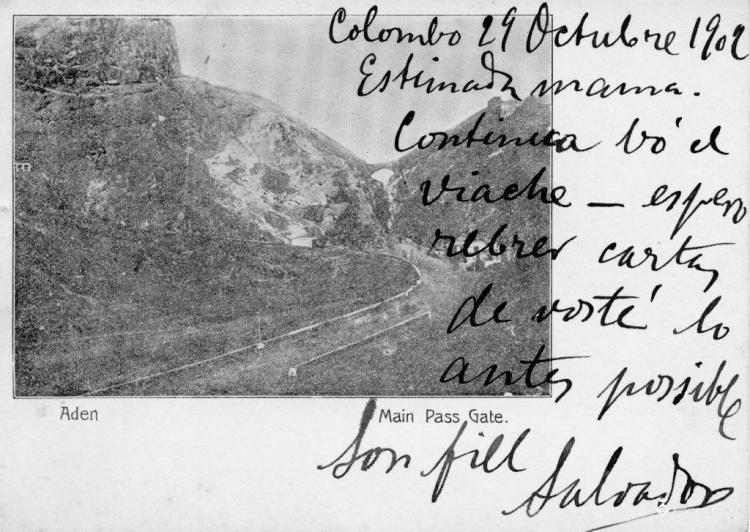 Colombo 29 Octubre 1902
Estimada mama.
Continua bó el
viache — espero
rebrer cartas
de vosté lo
antes possible
Son fill
Salvador
Aden
Main Pass Gate.